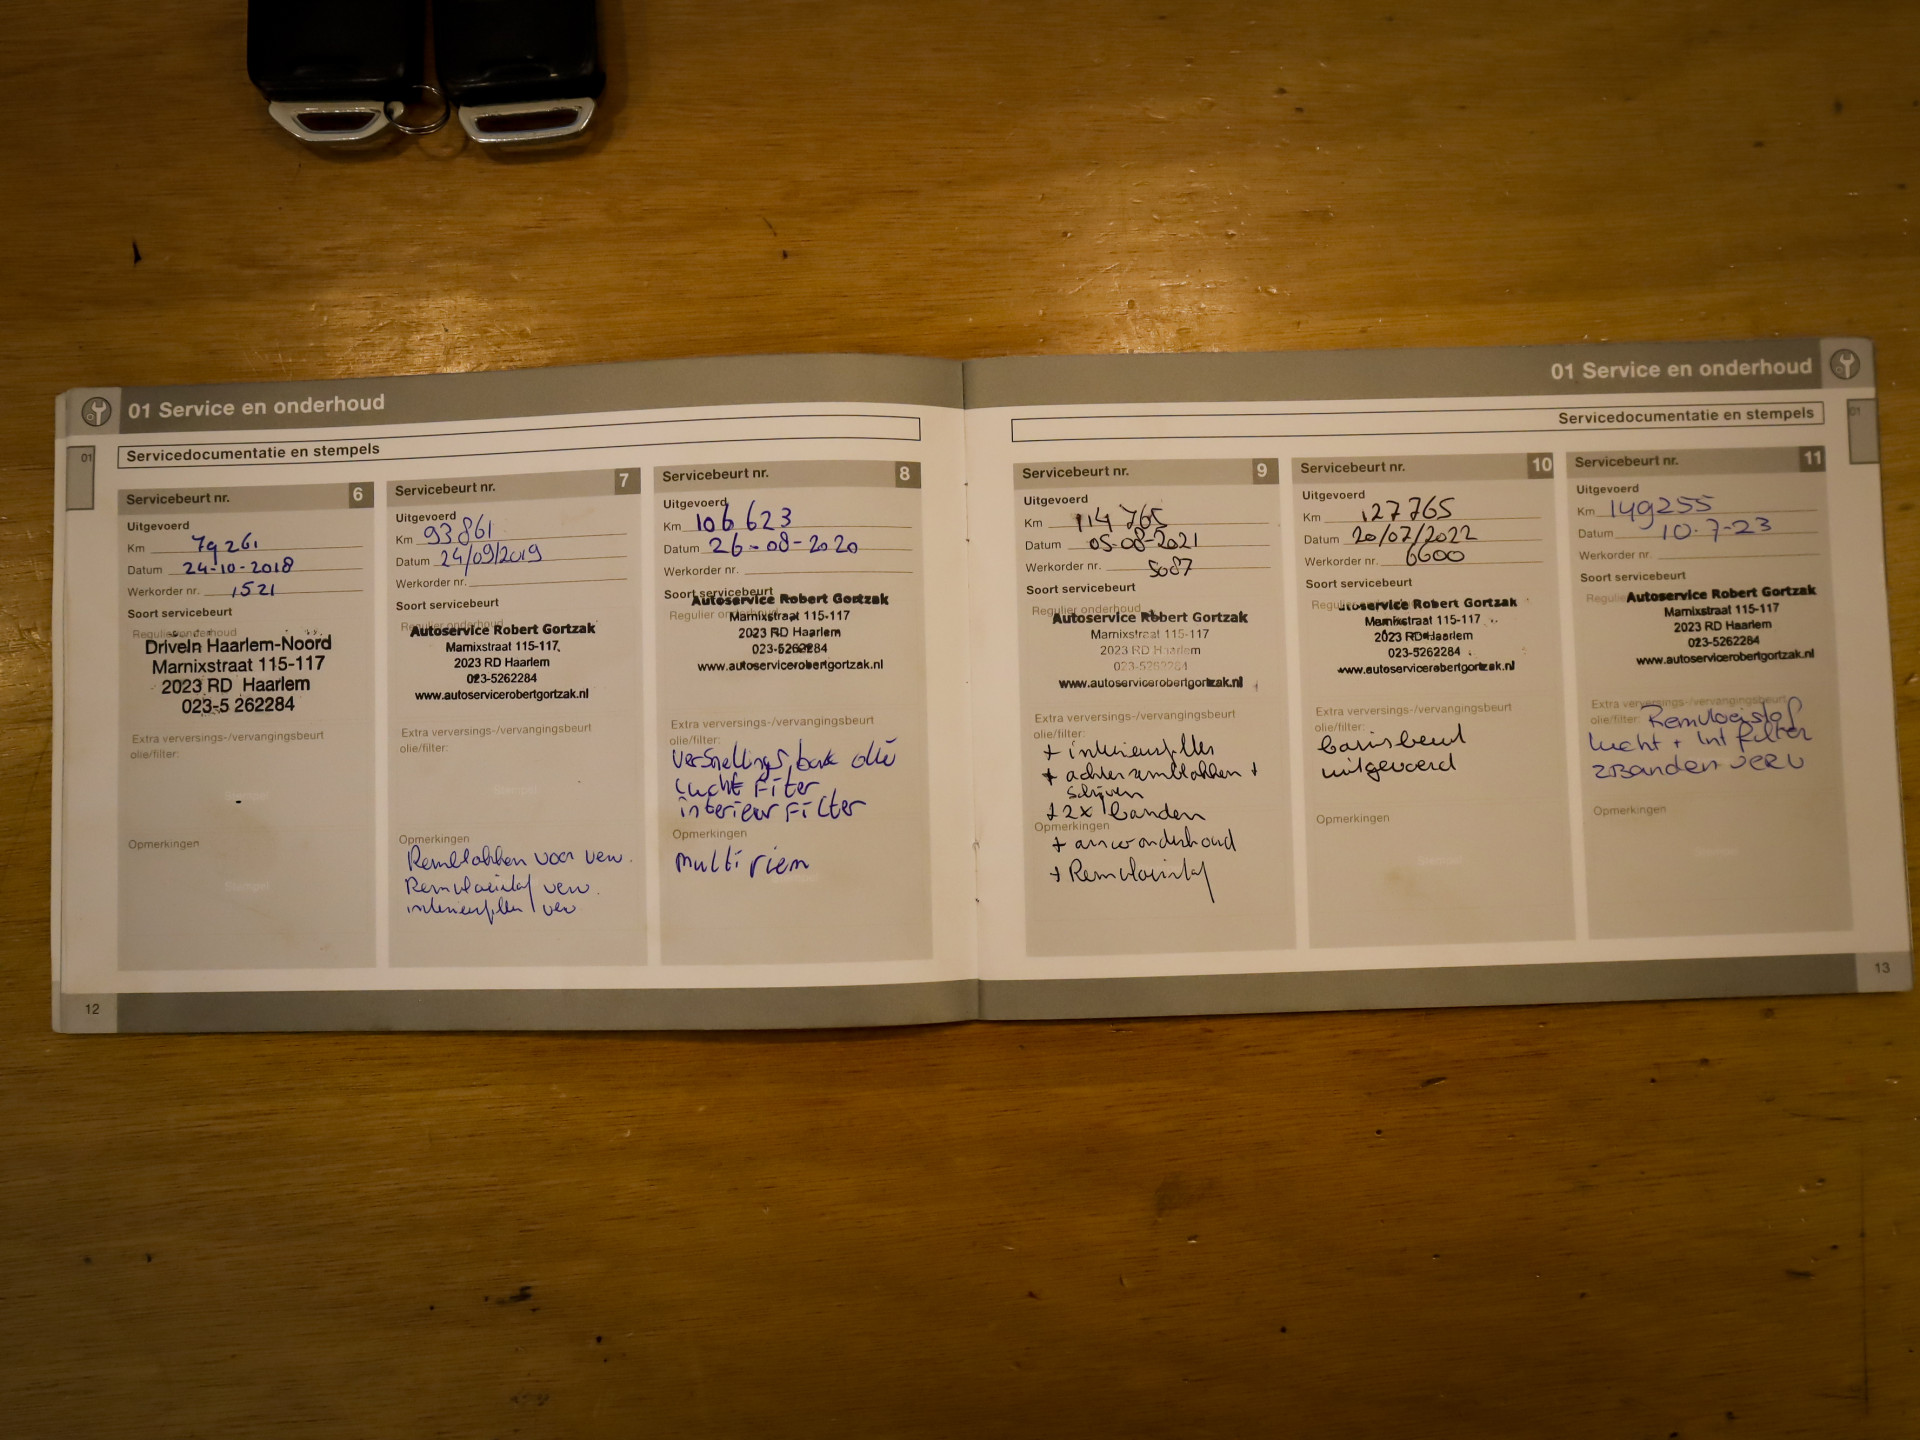 01 Service en onderhoud
01
Servicedocumentatie en stempels
Servicebeurt nr. 6
Uitgevoerd
Km 79261
Datum 24-10-2018
Werkorder nr. 1521
Soort servicebeurt
Regulier onderhoud
DriveIn Haarlem-Noord
Marnixstraat 115-117
2023 RD Haarlem
023-5 262284
Extra verversings-/vervangingsbeurt
olie/filter:
Stempel
Opmerkingen
Stempel
Servicebeurt nr. 7
Uitgevoerd
Km 93861
Datum 24/09/2019
Werkorder nr.
Soort servicebeurt
Regulier onderhoud
Autoservice Robert Gortzak
Marnixstraat 115-117,
2023 RD Haarlem
023-5262284
www.autoservicerobertgortzak.nl
Extra verversings-/vervangingsbeurt
olie/filter:
Stempel
Opmerkingen
Remblokken voor verv.
Remvloeistof verv.
interieurfilter verv
Servicebeurt nr. 8
Uitgevoerd
Km 106623
Datum 26-08-2020
Werkorder nr.
Soort servicebeurt
Regulier onderhoud
Autoservice Robert Gortzak
Marnixstraat 115-117
2023 RD Haarlem
023-5262284
www.autoservicerobertgortzak.nl
Extra verversings-/vervangingsbeurt
olie/filter:
versnellings bak olie
Lucht Filter
interieur Filter
Opmerkingen
multi riem
12
01 Service en onderhoud
01
Servicedocumentatie en stempels
Servicebeurt nr. 9
Uitgevoerd
Km 114765
Datum 05-08-2021
Werkorder nr. 5087
Soort servicebeurt
Regulier onderhoud
Autoservice Robert Gortzak
Marnixstraat 115-117
2023 RD Haarlem
023-5262284
www.autoservicerobertgortzak.nl
Extra verversings-/vervangingsbeurt
olie/filter:
+ interieurfilter
+ achter remblokken +
schijven
+ 2x banden
Opmerkingen
+ aircoonderhoud
+ Remvloeistof
Servicebeurt nr. 10
Uitgevoerd
Km 127765
Datum 20/07/2022
Werkorder nr. 6600
Soort servicebeurt
Autoservice Robert Gortzak
Marnixstraat 115-117
2023 RD Haarlem
023-5262284
www.autoservicerobertgortzak.nl
Extra verversings-/vervangingsbeurt
olie/filter:
basisbeurt
uitgevoerd
Opmerkingen
Servicebeurt nr. 11
Uitgevoerd
Km 149255
Datum 10-7-23
Werkorder nr.
Soort servicebeurt
Autoservice Robert Gortzak
Marnixstraat 115-117
2023 RD Haarlem
023-5262284
www.autoservicerobertgortzak.nl
Extra verversings-/vervangingsbeurt
olie/filter: Remvloeistof
lucht + int filter
2 Banden verv
Opmerkingen
13